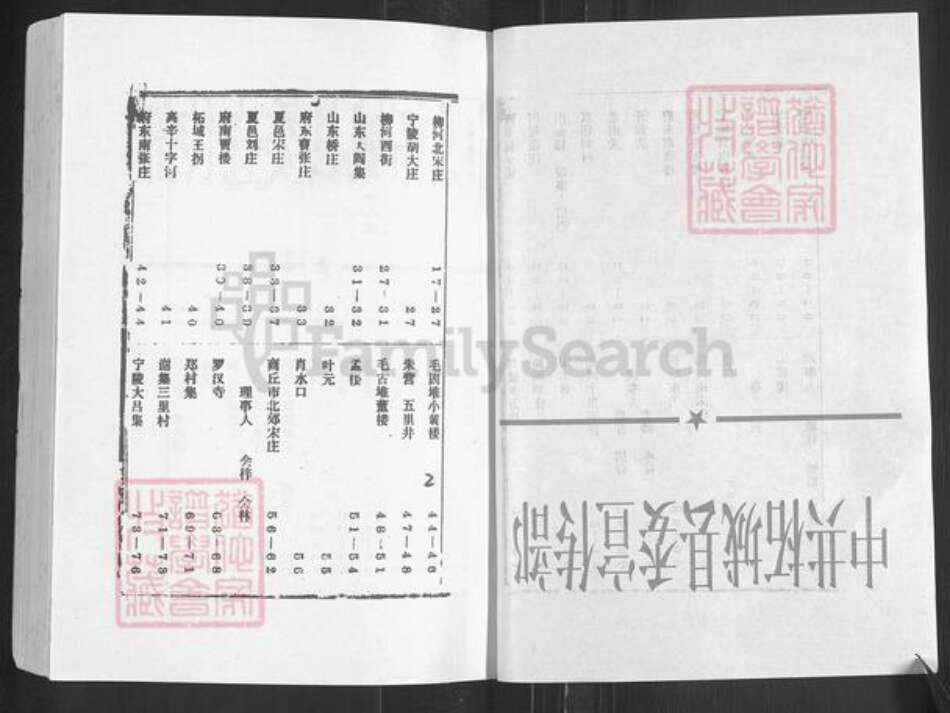 柳河北宋庄 17—27
宁陵胡大庄 27
柳河西街 27—31
山东人阎集 31—32
山东桥庄 32
府东曹张庄 33
夏邑宋庄 33—37
夏邑刘庄 38—39
府南贾楼 39—40
柘城王拐 40
高辛十字河 41
府东南张庄 42—44
毛固堆小黄楼 44—46
朱营 五里井 47—48
毛古堆董楼 48—51
孟楼 51—54
叶元 55
肖水口 56
商丘市北郊宋庄 56—62
理事人
罗汉寺 63—68
郑村集 69—71
谢集三里村 71—73
宁陵大吕集 73—76
2
中共柘城县委宣传部
FamilySearch